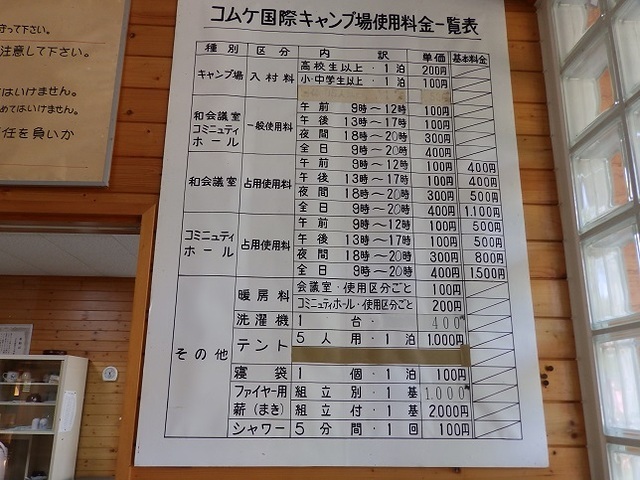 守って下さい。
注意して下さい。
はいけません。
めてはいけません。
任を負いか
コムケ国際キャンプ場使用料金一覧表
種別 区分 内訳 単価 基本料金
キャンプ場 入村料 高校生以上・1泊 200円
小・中学生以上・1泊 100円
和会議室 コミニュティホール 一般使用料 午前 9時〜12時 100円
午後 13時〜17時 100円
夜間 18時〜20時 300円
全日 9時〜20時 400円
和会議室 占用使用料 午前 9時〜12時 100円 400円
午後 13時〜17時 100円 400円
夜間 18時〜20時 300円 500円
全日 9時〜20時 400円 1,100円
コミニュティホール 占用使用料 午前 9時〜12時 100円 500円
午後 13時〜17時 100円 500円
夜間 18時〜20時 300円 800円
全日 9時〜20時 400円 1,500円
その他 暖房料 会議室・使用区分ごと 100円
コミニュティホール・使用区分ごと 200円
洗濯機 1台・ 400円
テント 5人用・1泊 1,000円
寝袋 1個・1泊 100円
ファイヤー用 組立別・1基 1,000円
薪(まき) 組立付・1基 2,000円
シャワー 5分間・1回 100円